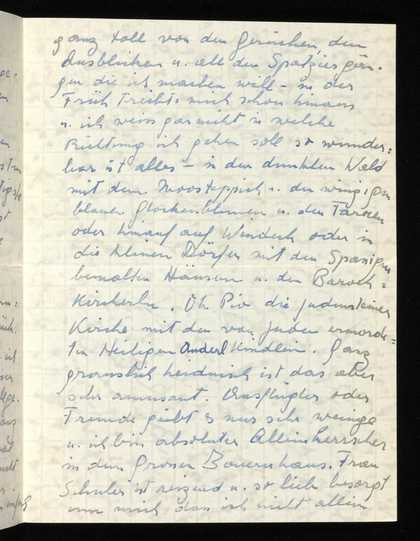 ganz toll von den Gerüchen, den
Ausblicken u. all den Spatziergän-
gen die ich machen will – in der
Früh treibts mich schon hinaus
u. ich weiss gar nicht in welche
Richtung ich gehen soll so wunder=
bar ist alles – in den dunklen Wald
mit dem Moosteppich u. den winzigen
blauen Glockenblumen u. den Farnen
oder hinauf auf oder in
die kleinen Dörfer mit den spassigen
bemalten Häusern u. den Barock-
Kircherln. Oh Pio die judensteiner
Kirche mit den von Juden ermorde-
ten Heiligen Anderl Kindlein. Ganz
grauslich heidnisch ist das aber
sehr amusant. Ausflügler oder
Fremde giebt es nur sehr wenige
u. ich bin absoluter Alleinherrscher
in dem grossen Bauernhaus. Frau
Schuler ist reizend u. so lieb besorgt
um mich dass ich nicht allein